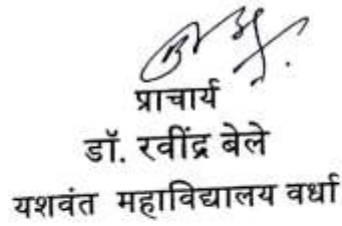 प्राचार्य
डॉ. रवींद्र बेले
यशवंत महाविद्यालय वर्धा